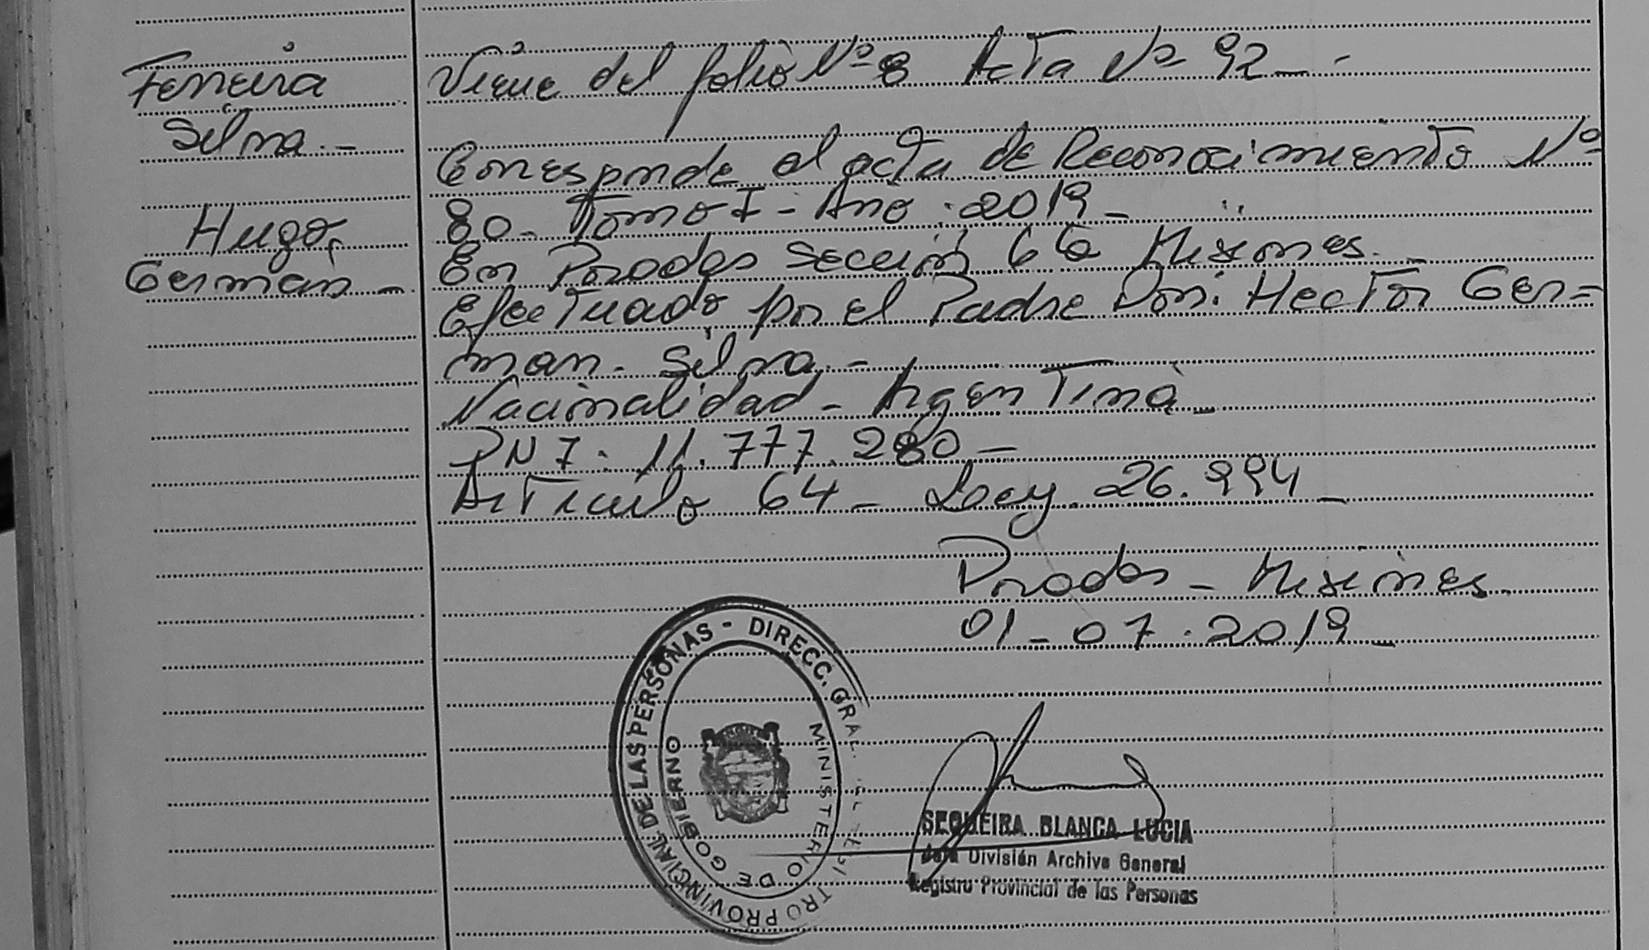 Ferreira
Silva.-
Hugo,
Germán -
Viene del folio Nº 8 Acta Nº 92 -
Corresponde al acta de Reconocimiento Nº
80 - Tomo I - Año: 2019 -
En Posadas Sección 6ta Misiones. -
Efectuado por el Padre Don: Hector Ger=
man. Silva. -
Nacionalidad - Argentina -
DNI. 11.777.280 -
Articulo 64 - Ley. 26.994 -
Posadas - Misiones.
01 - 07 - 2019 -
DIRECC. GRAL. REGISTRO PROVINCIAL DE LAS PERSONAS -
MINISTERIO DE GOBIERNO
SEQUEIRA BLANCA LUCIA
Jefa División Archivo General
Registro Provincial de las Personas